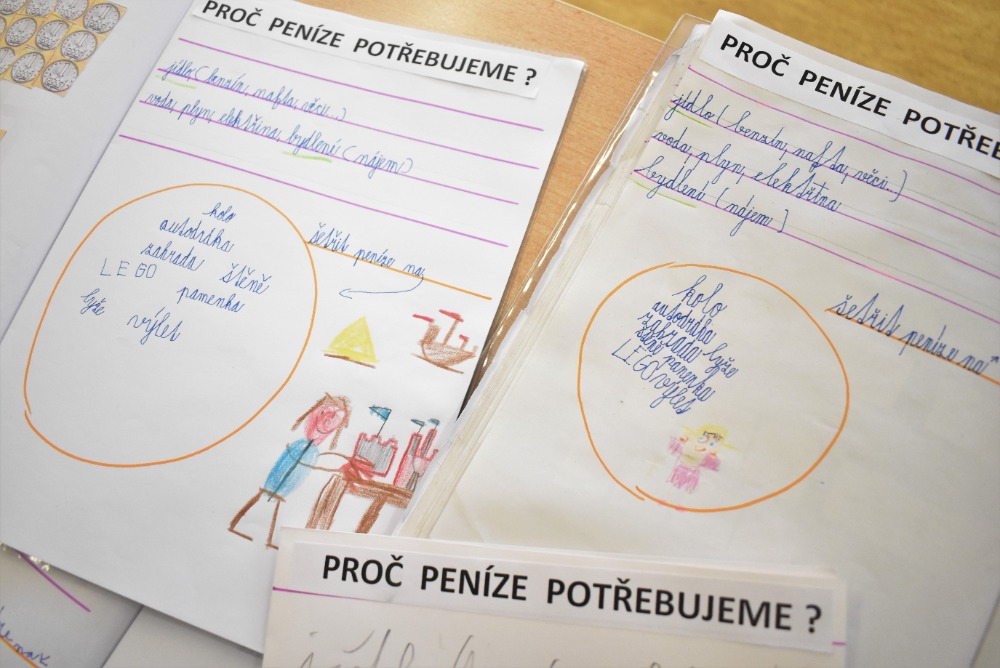 PROČ PENÍZE POTŘEBUJEME ?
jídlo (benzín, nafta, věci...)
voda, plyn, elektřina, bydlení (nájem)
kolo
autodráha
zahrada
LEGO štěně
panenka
lyže výlet
šetřit peníze na:
PROČ PENÍZE POTŘEBUJE
jídlo (benzín, nafta, věci...)
voda, plyn, elektřina
bydlení (nájem)
kolo
autodráha
zahrada lyže
štěně panenka
LEGO výlet
šetřit peníze na
PROČ PENÍZE POTŘEBUJEME ?